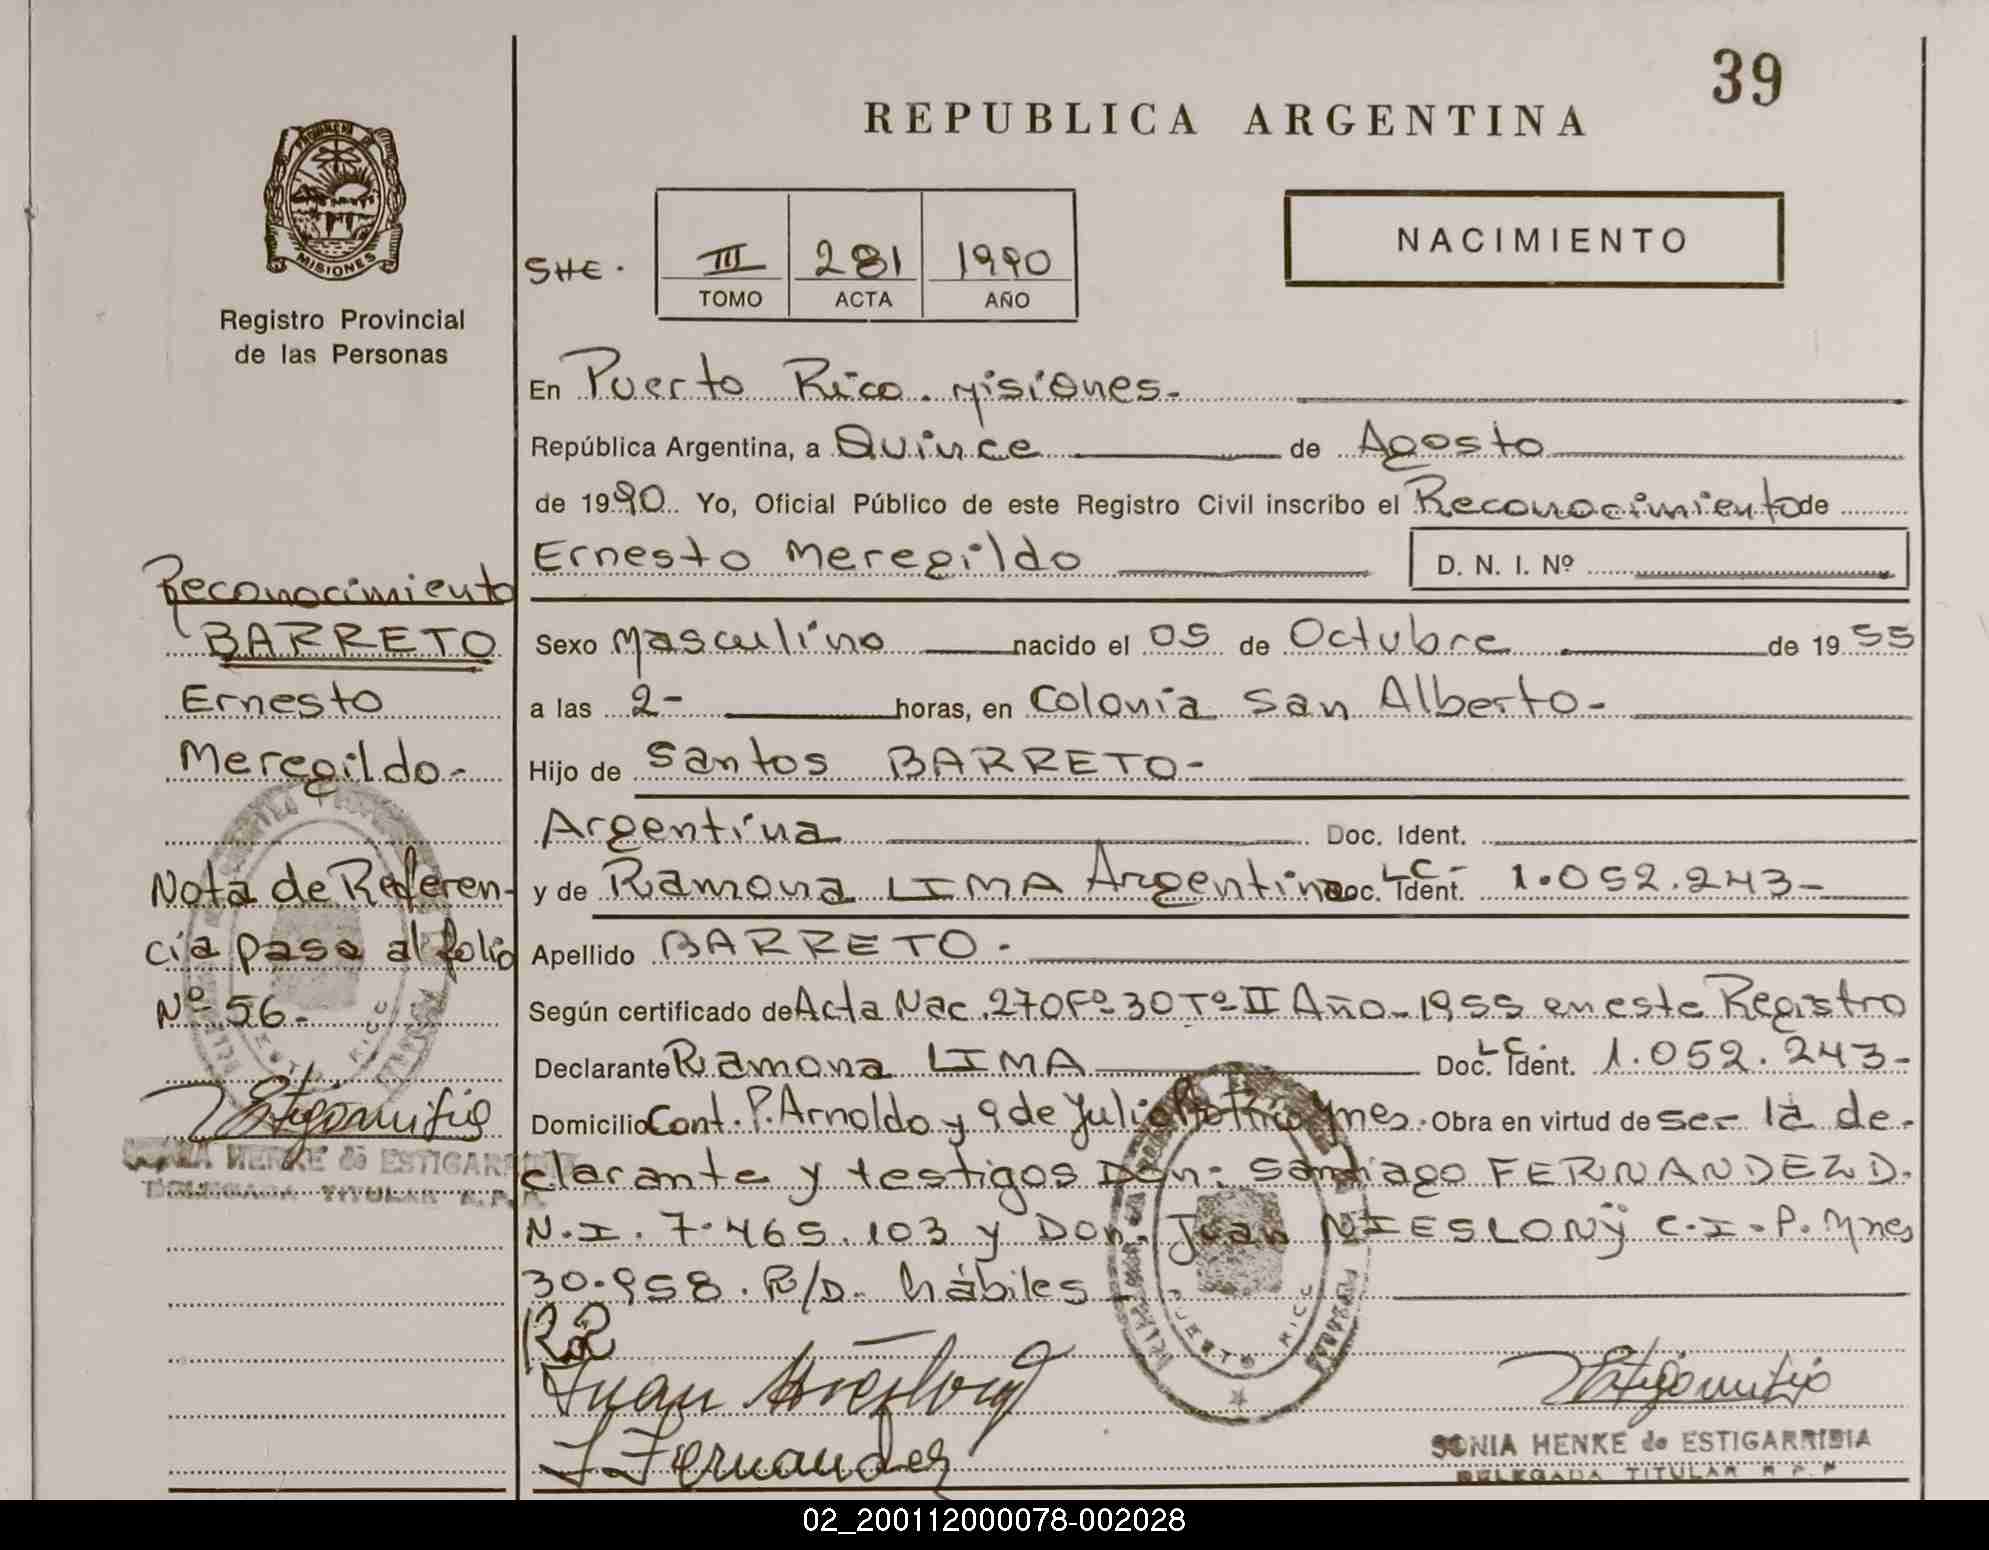 39
REPUBLICA ARGENTINA
PROVINCIA DE
MISIONES
Registro Provincial
de las Personas
SHE.
III 281 1990
TOMO ACTA AÑO
NACIMIENTO
En Puerto Rico. Misiones-
República Argentina, a Quince de Agosto
de 1990. Yo, Oficial Público de este Registro Civil inscribo el Reconocimiento de
Ernesto Meregildo D. N. I. Nº
Reconocimiento
BARRETO
Ernesto
Meregildo-
Nota de Referen-
cia pasa al folio
Nº 56-
SONIA HENKE de ESTIGARRIBIA
DELEGADA TITULAR R.P.P.
Sexo Masculino nacido el 05 de Octubre de 1955
a las 2- horas, en Colonia San Alberto-
Hijo de Santos BARRETO-
Argentina Doc. Ident.
y de Ramona LIMA Argentina Doc. Ident. LC- 1.052.243-
Apellido BARRETO-
Según certificado de Acta Nac. 270 Fº 30 Tº II Año- 1955 en este Registro
Declarante Ramona LIMA Doc. Ident. LC. 1.052.243-
Domicilio Cont. P. Arnoldo y 9 de Julio Pto Rico Mnes. Obra en virtud de ser la de-
clarante y testigos Don: Santiago FERNANDEZ D.
N.I. 7.465.103 y Don. Juan NIESLONY C.I.P. Mnes
30.958. R/D. hábiles
PUERTO RICO
Juan Nieslony
S Fernandez
SONIA HENKE de ESTIGARRIBIA
DELEGADA TITULAR R.P.P.
02_200112000078-002028